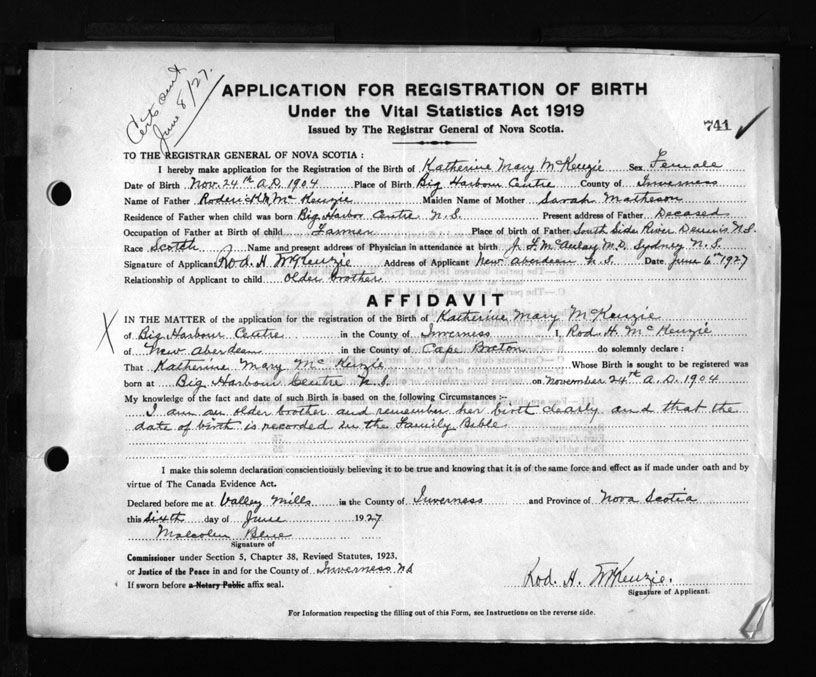 Cert. out
June 8/27.
APPLICATION FOR REGISTRATION OF BIRTH
Under the Vital Statistics Act 1919
Issued by The Registrar General of Nova Scotia.
741
TO THE REGISTRAR GENERAL OF NOVA SCOTIA :
I hereby make application for the Registration of the Birth of Katherine Mary McKenzie Sex Female
Date of Birth Nov. 24th A.D. 1904 Place of Birth Big Harbour Centre County of Inverness
Name of Father Roderick McKenzie Maiden Name of Mother Sarah Matheson
Residence of Father when child was born Big Harbor Centre N.S. Present address of Father Deceased
Occupation of Father at Birth of child Farmer Place of birth of Father South Side River Dennis N.S.
Race Scotch Name and present address of Physician in attendance at birth J. F. McAulay M.D. Sydney N.S.
Signature of Applicant Rod. H. McKenzie Address of Applicant New Aberdeen N.S. Date June 6th 1927
Relationship of Applicant to child older brother
AFFIDAVIT
IN THE MATTER of the application for the registration of the Birth of Katherine Mary McKenzie
of Big Harbour Centre in the County of Inverness I, Rod H. McKenzie
of New Aberdeen in the County of Cape Breton do solemnly declare :
That Katherine Mary McKenzie Whose Birth is sought to be registered was
born at Big Harbour Centre N.S. on November 24th A.D. 1904
My knowledge of the fact and date of such Birth is based on the following Circumstances :-
I am an older brother and remember her birth clearly and that the
date of birth is recorded in the Family Bible
I make this solemn declaration conscientiously believing it to be true and knowing that it is of the same force and effect as if made under oath and by
virtue of The Canada Evidence Act.
Declared before me at Valley Mills in the County of Inverness and Province of Nova Scotia
this sixth day of June 1927
Malcolm Blue
Signature of
Commissioner under Section 5, Chapter 38, Revised Statutes, 1923.
or Justice of the Peace in and for the County of Inverness N.S.
If sworn before a Notary Public affix seal.
Rod. H. McKenzie.
Signature of Applicant.
For Information respecting the filling out of this Form, see Instructions on the reverse side.